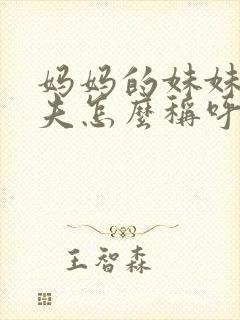 妈妈的妹妹
夫怎麼稱呼
王智森